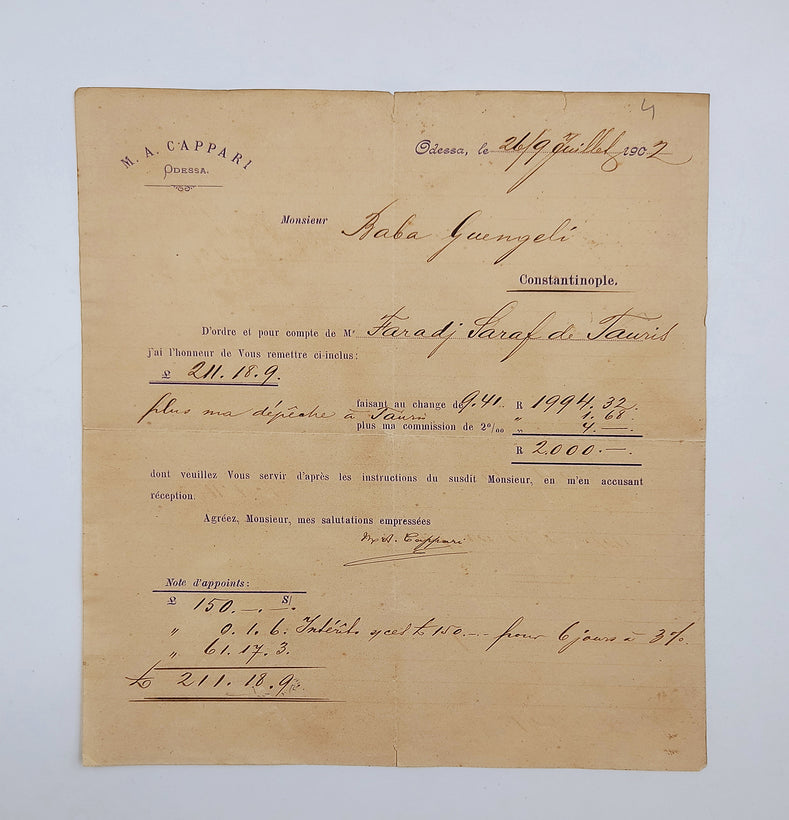 4
M. A. CAPPARI
ODESSA.
Odessa, le 26/9 Juillet 1902
Monsieur Baba Guengeli
Constantinople.
D'ordre et pour compte de Mr Faradj Saraf de Tauris
j'ai l'honneur de Vous remettre ci-inclus:
£ 211.18.9.
faisant au change de 9.41. R 1994.32.
plus ma dépêche à Tauris „ 1.68
plus ma commission de 2‰ „ 4.—
R 2000.—
dont veuillez Vous servir d'après les instructions du susdit Monsieur, en m'en accusant
réception.
Agréez, Monsieur, mes salutations empressées
M. A. Cappari
Note d'appoints:
£ 150.—.—. S/
„ 0.1.6. Intérêts £ 150.-.- pour 6 jours à 3%.
„ 61.17.3.
£ 211.18.9.